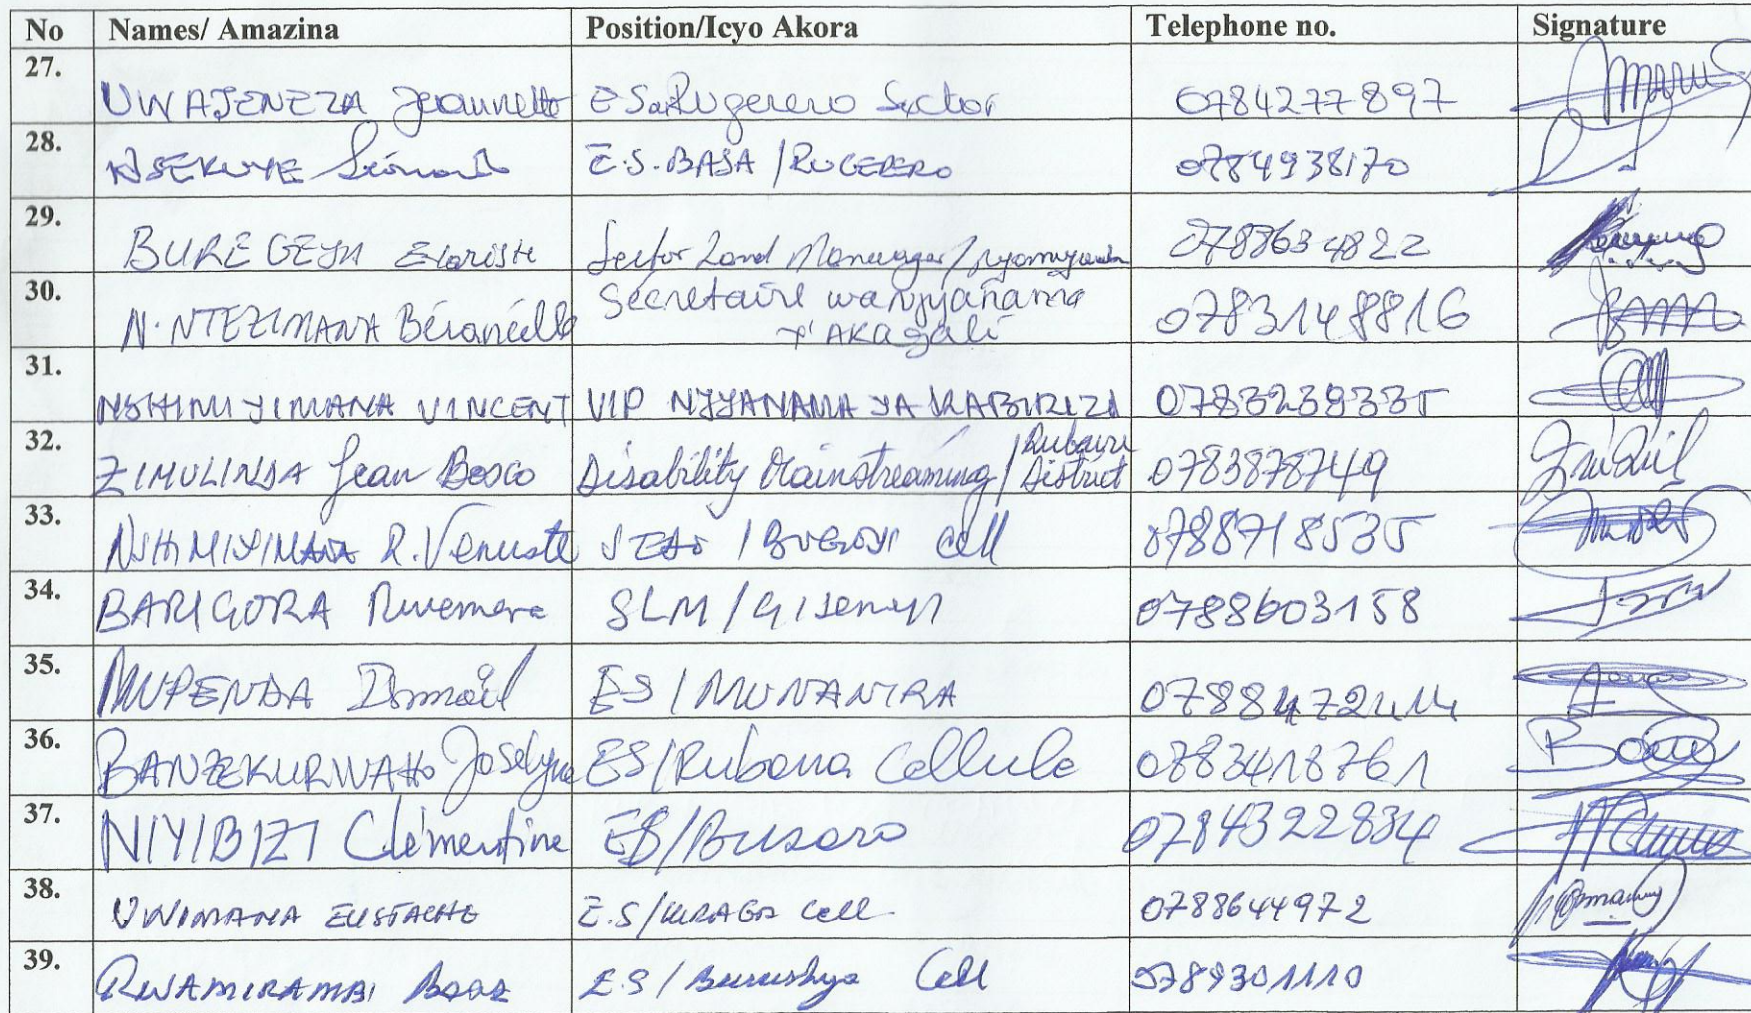 No Names/ Amazina Position/Icyo Akora Telephone no. Signature
27. UWAJENEZA Jeannette ES Rugerero Sector 0784277897
28. NSEKUYE E.S. BASA / RUGERERO 0784938170
29. BUREGEYA Evariste Sector Land Manager / 0788634822
30. N. NTEZIMANA Bérancille Secretaire wa Njyanama y'Akagali 0783148816
31. NSHIMIYIMANA VINCENT VIP NJYANAMA YA KABIRIZI 0783239335
32. ZIMULINDA Jean Bosco Disability Mainstreaming / Rubavu District 0783878749
33. NSHIMIYIMANA R. Venuste / BUGOYI Cell 0788718535
34. BARIGORA SLM / Gisenyi 0788603158
35. MUPENDA Ismaël ES / MUNANIRA
36. BANZEKURIVAHO Joselyne ES/Rubona Cellule 0783418761
37. NIYIBIZI Clémentine ES/Busoro 0784322834
38. UWIMANA EUSTACHE E.S/ Cell 0788644972
39. RWAMIRAMBI Boaz E.S / Burushya Cell 0789301110